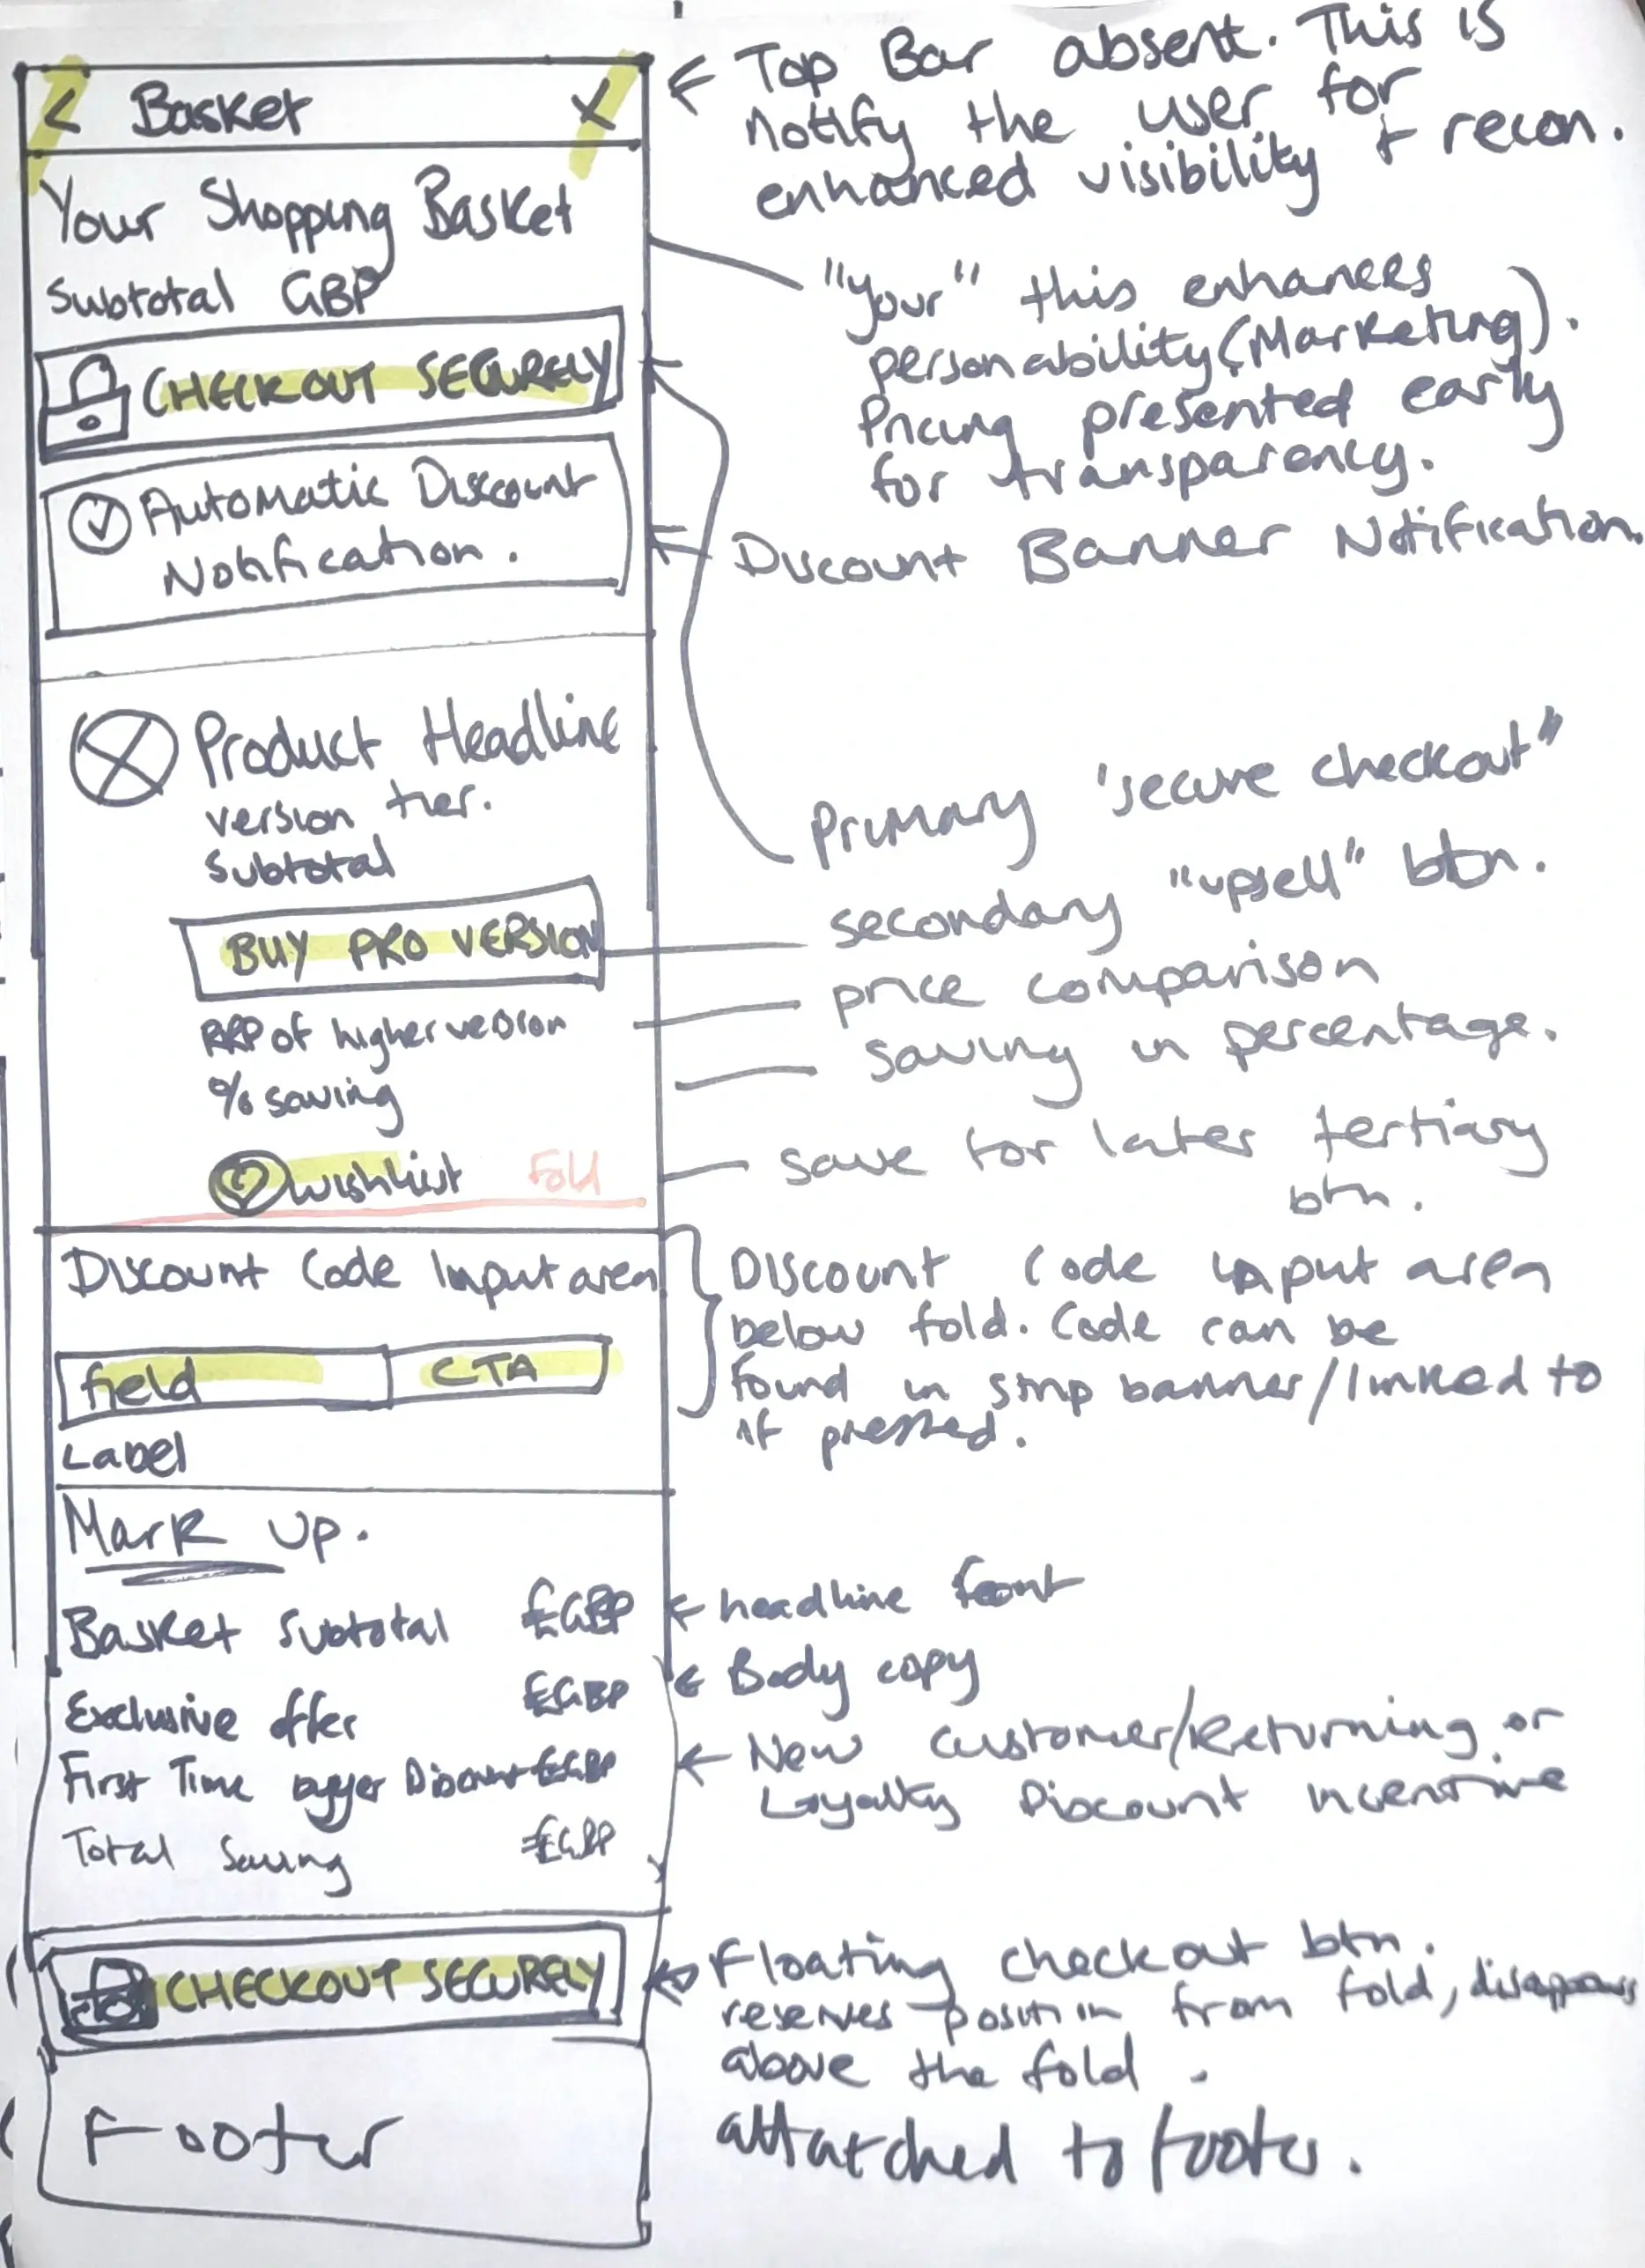 < Basket X
Your Shopping Basket
Subtotal GBP
CHECKOUT SECURELY
Automatic Discount
Notification.
Product Headline
version tier.
Subtotal
BUY PRO VERSION
RRP of higher version
% saving
wishlist Fold
Discount Code Input area
field CTA
Label
Mark up.
Basket Subtotal £GBP
Exclusive offer £GBP
First Time buyer Discount £GBP
Total Saving £GBP
CHECKOUT SECURELY
Footer
Top Bar absent. This is
Notify the user for
enhanced visibility + recon.
"your" this enhances
personability (Marketing).
Pricing presented early
for transparency.
Discount Banner Notification.
Primary 'secure checkout"
secondary "upsell" btn.
price comparison
saving in percentage.
save for later tertiary
btn.
Discount Code input area
below fold. Code can be
found in strip banner/linked to
if pressed.
headline font
Body copy
New customer/Returning or
Loyalty Discount incentive
Floating checkout btn.
reserves position from fold, disappears
above the fold.
attatched to footer.